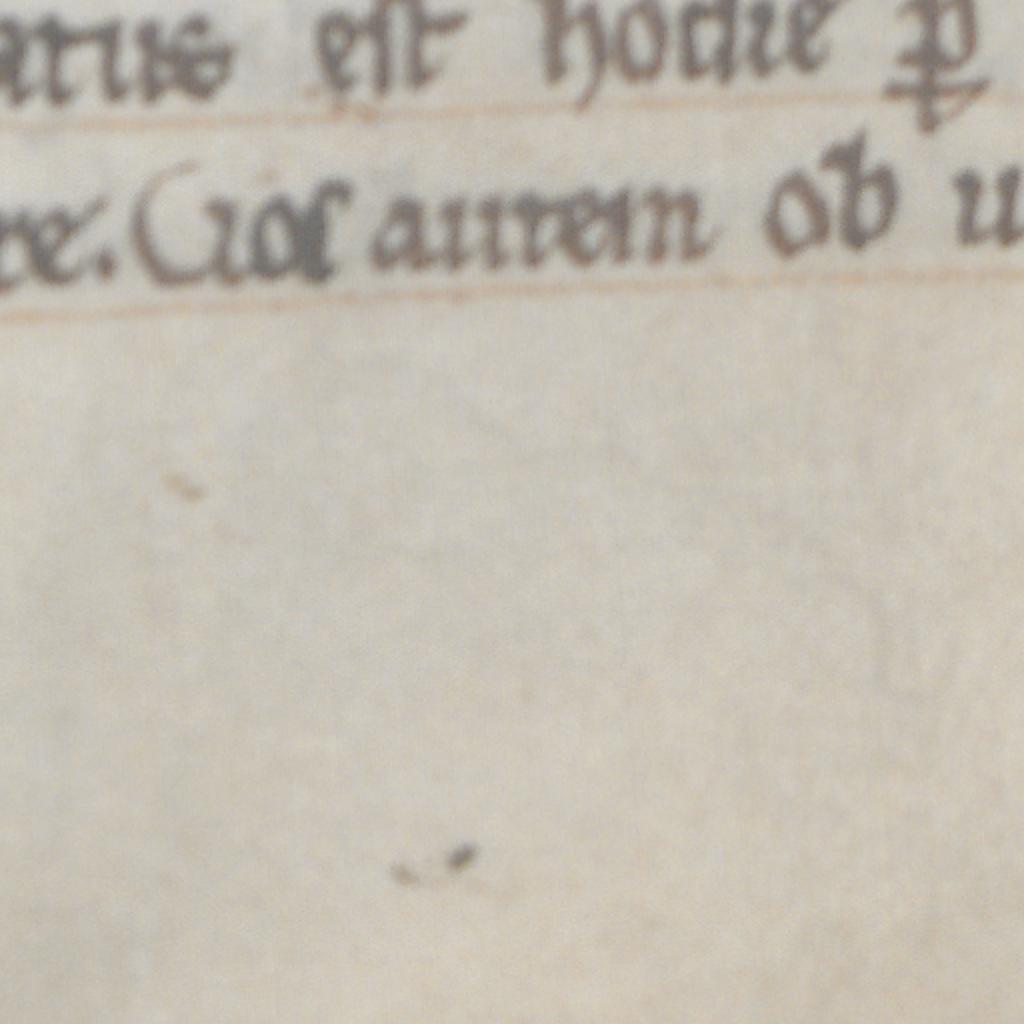 atus est hodie ꝑ
re. Uos autem ob u